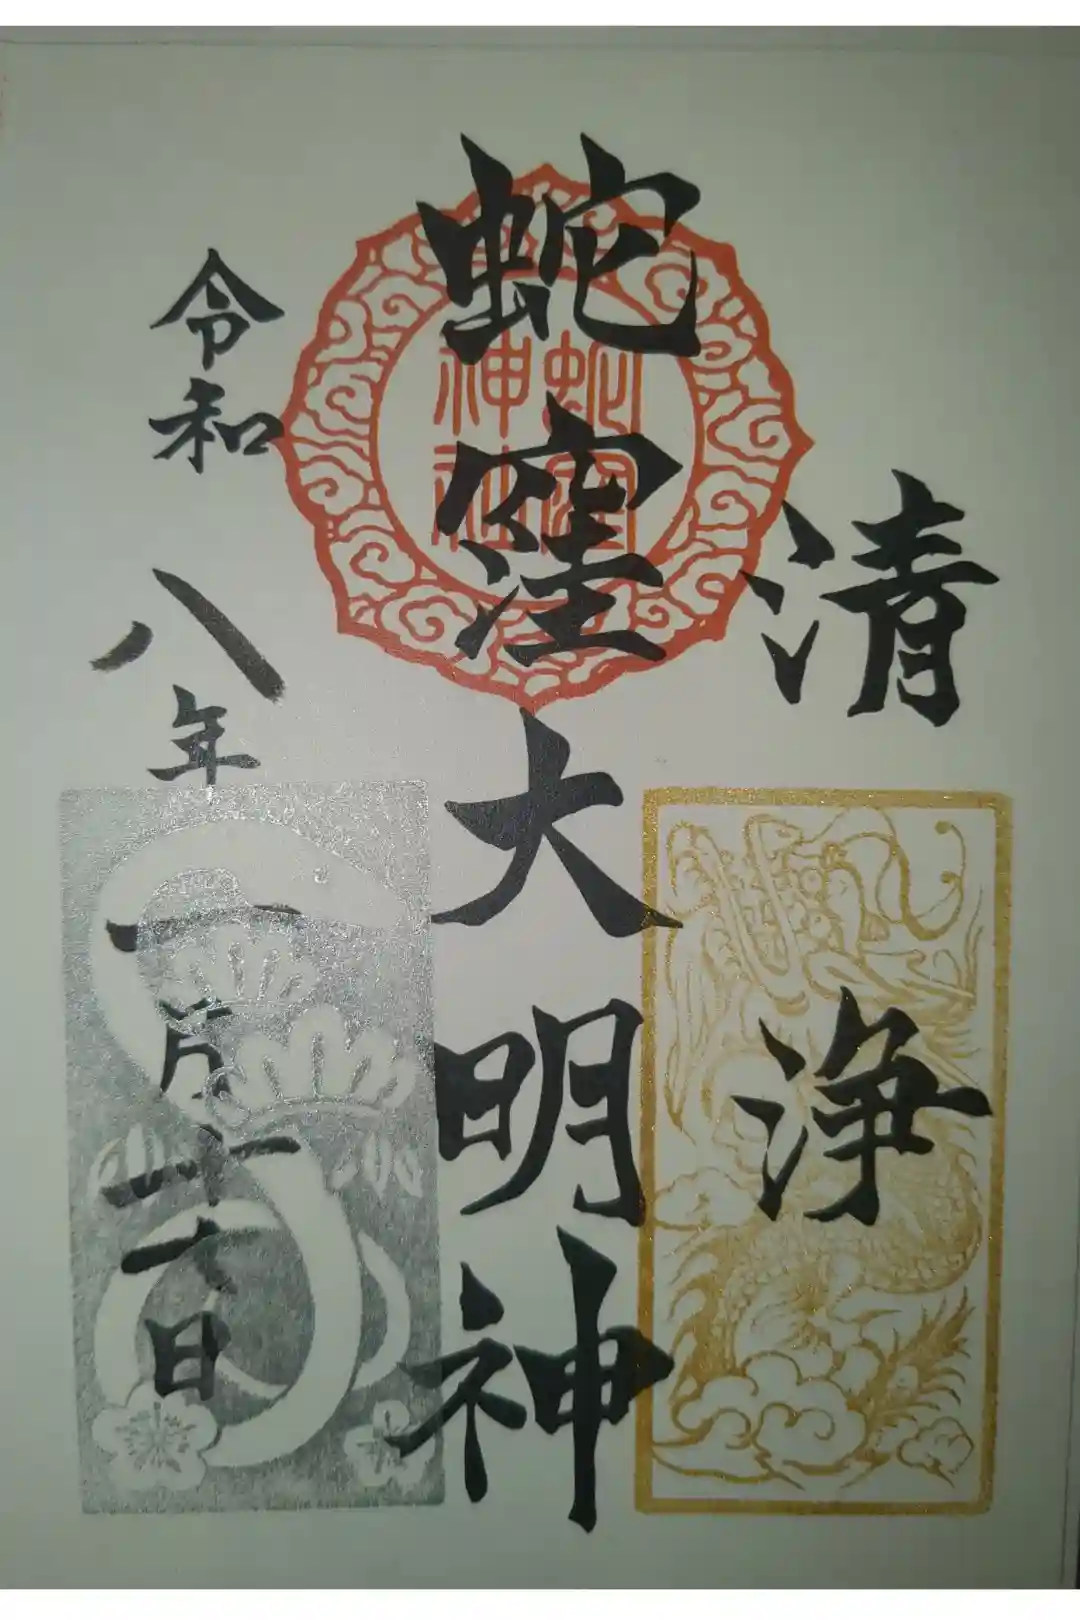 清浄
蛇窪大明神
蛇窪
神社
令和八年一月廿日